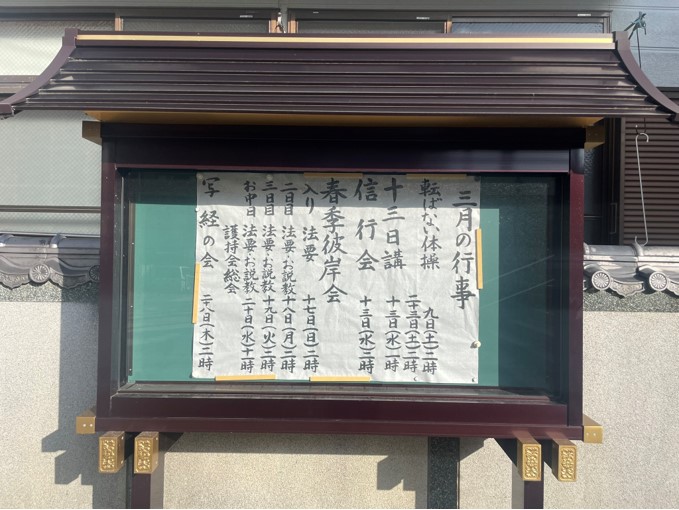 三月の行事
転ばない体操 九日(土)二時
二十三日(土)二時
十三日講 十三日(水)一時
信行会 十三日(水)三時
春季彼岸会
入り 法要 十七日(日)二時
二日目 法要・お説教 十八日(月)二時
三日目 法要・お説教 十九日(火)二時
お中日 法要・お説教 二十日(水)十一時
護持会総会
写経の会 二十八日(木)二時